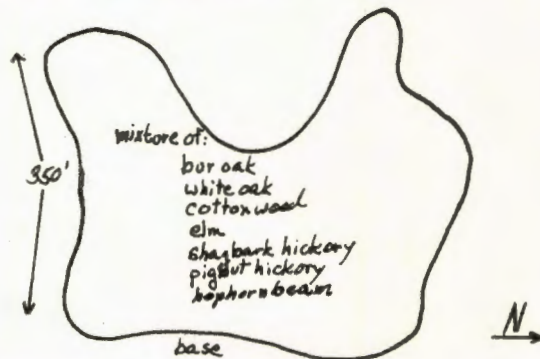 mixture of:
bur oak
white oak
cottonwood
elm
shagbark hickory
pignut hickory
hophornbeam
350'
base
N